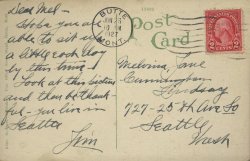 Dear Mel-
Hope you are
able to sit up
a little each day
by this time.
Look at this section
and then be thankful
ful - you live in
Seattle
Jim
BUTTE
1927
MONT.
Post
Card
Melvina Jane
Cunningham
727-25th Ave So
Seattle
Wash